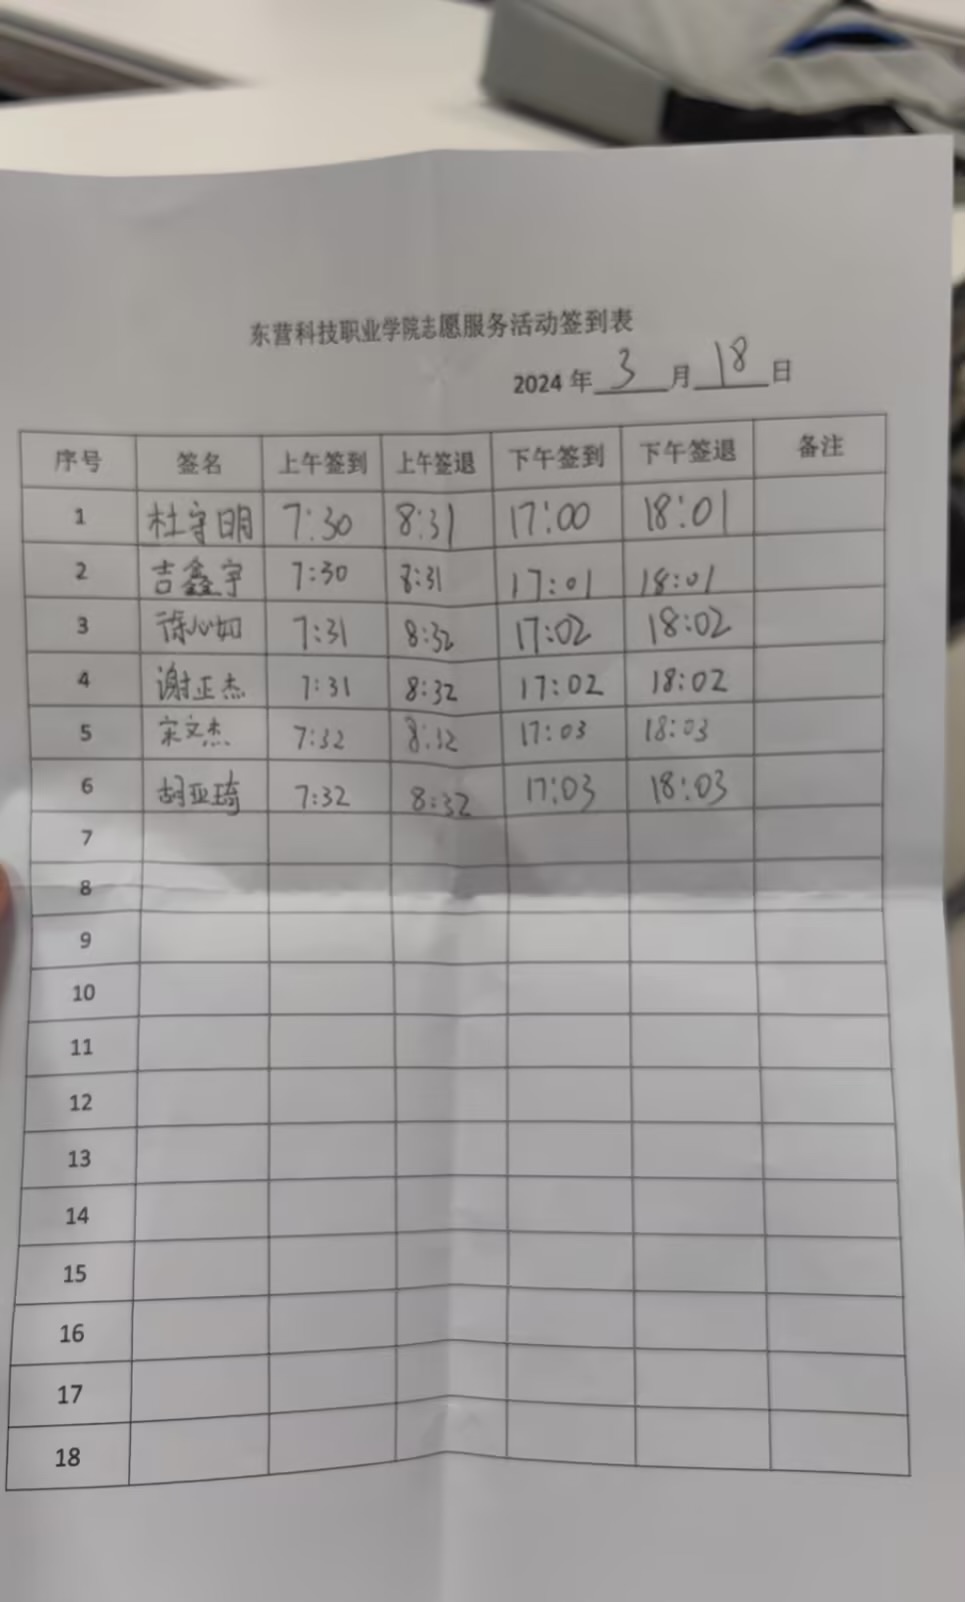 东营科技职业学院志愿服务活动签到表
2024 年 3 月 18 日
序号 签名 上午签到 上午签退 下午签到 下午签退 备注
1 杜守明 7:30 8:31 17:00 18:01
2 吉鑫宇 7:30 8:31 17:01 18:01
3 徐心如 7:31 8:32 17:02 18:02
4 谢正杰 7:31 8:32 17:02 18:02
5 宋文杰 7:32 8:32 17:03 18:03
6 胡亚琦 7:32 8:32 17:03 18:03
7
8
9
10
11
12
13
14
15
16
17
18